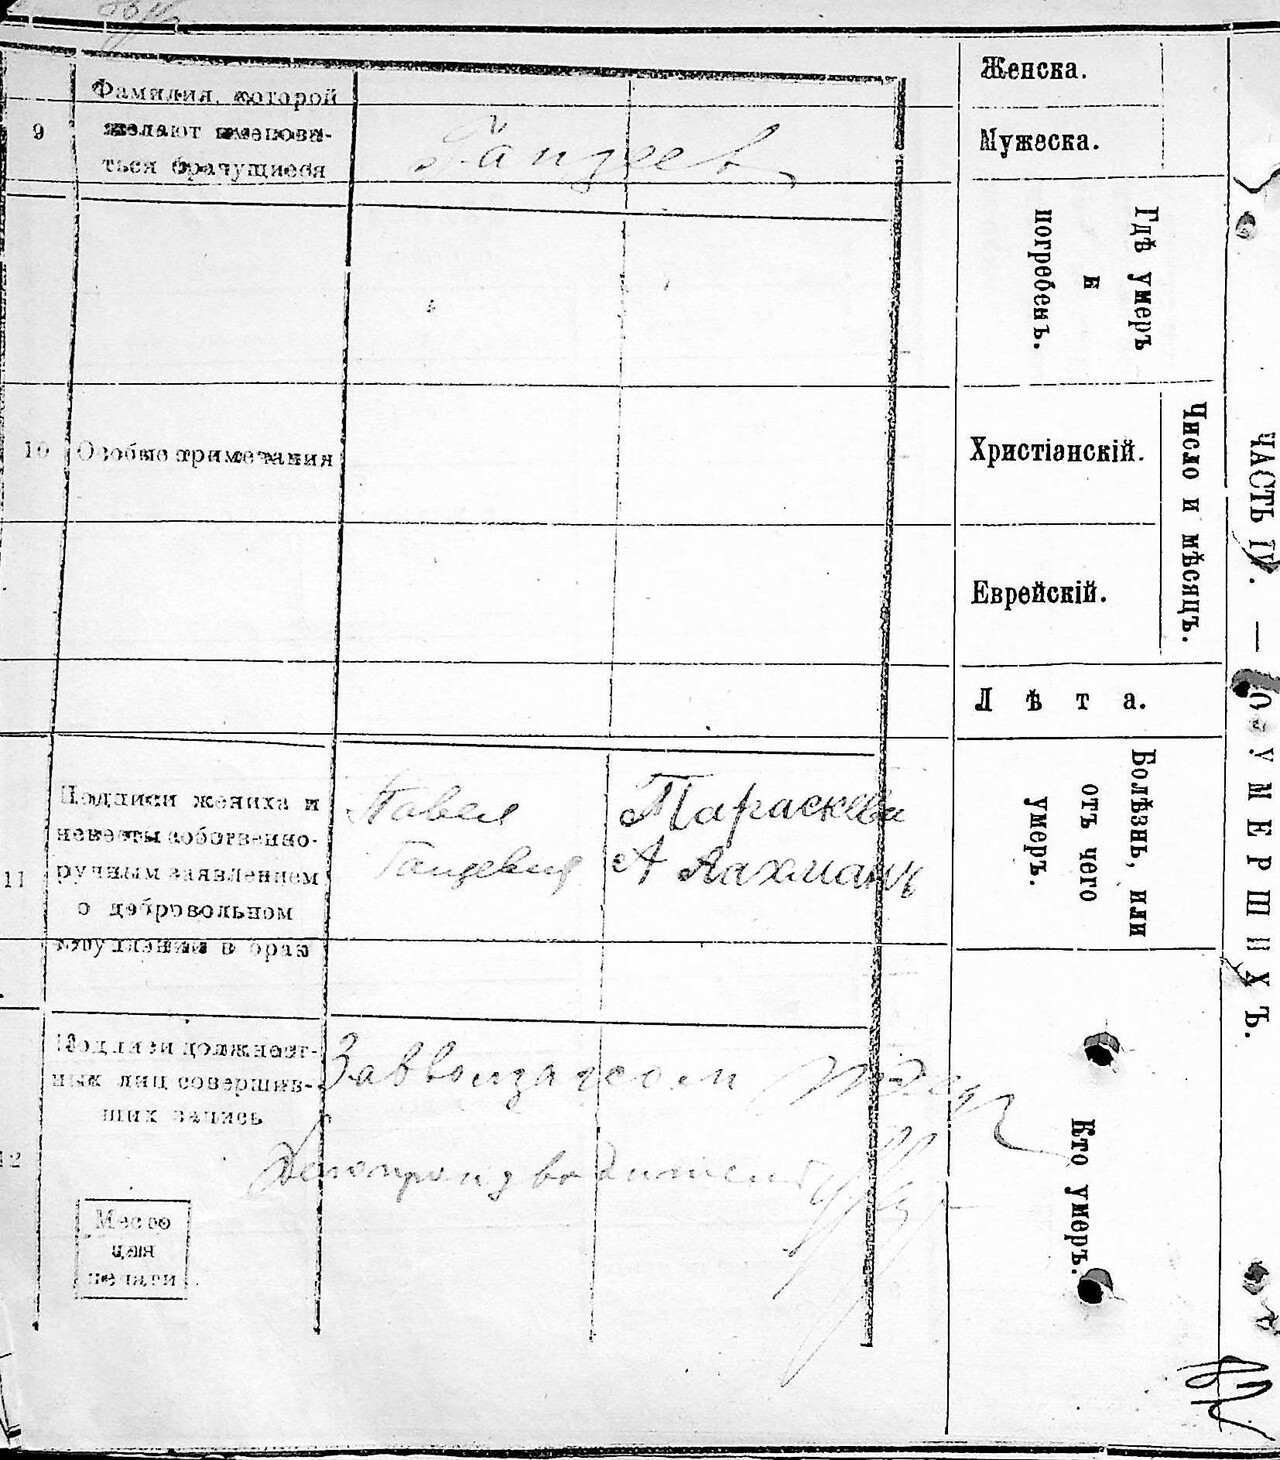 9
Фамилия, которой
желают именова-
ться брачущиеся
10
Особые примечания
11
Подписи жениха и
невесты собственно-
ручным заявлением
о добровольном
вступлении в брак
Павел
Параскева
А Лахманъ
12
Подписи должност-
ных лиц совершив-
ших запись
Заввользагсом
Делопроизводитель
Место
для
печати.
Женска.
Мужеска.
Гдѣ умеръ
и
погребенъ.
Число и мѣсяцъ.
Христіанскій.
Еврейскій.
Лѣта.
Болѣзнь, или
отъ чего
умеръ.
Кто умеръ.
ЧАСТЬ IV. — О УМЕРШИХЪ.